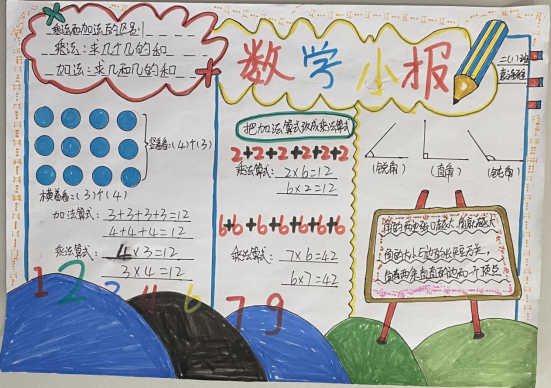 乘法和加法的区别
乘法:求几个几的和
加法:求几和几的和
数学小报
二(1)班
竖着看:(4)个(3)
横着看:(3)个(4)
加法算式:3+3+3+3=12
4+4+4=12
乘法算式:4×3=12
3×4=12
把加法算式改成乘法算式
2+2+2+2+2+2
乘法算式:2×6=12
6×2=12
6+6+6+6+6+6+6
乘法算式:7×6=42
6×7=42
(锐角)
(直角)
(钝角)
角的两边张口越大,角就越大
角的大小与边的长短无关,
角有两条直直的边和一个顶点
1 2 3 4 6 7 9